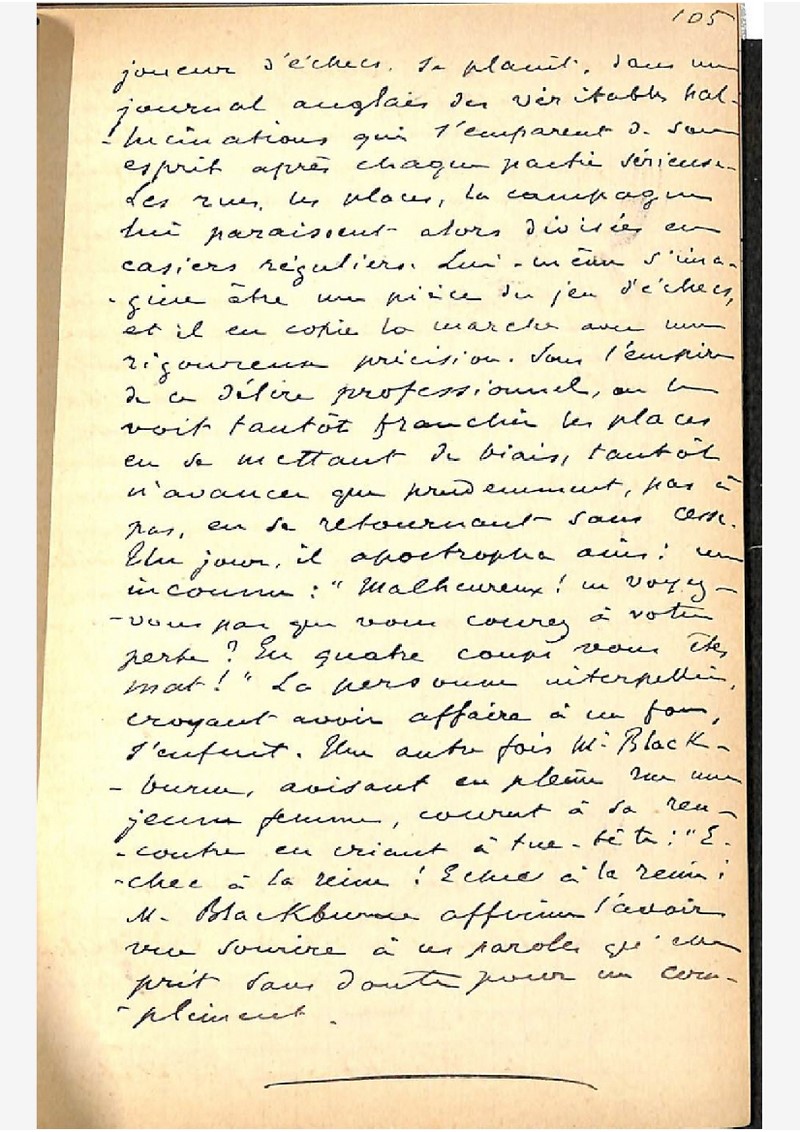 105
joueur d'échecs, se plaint, dans un
journal anglais des véritables hal-
-lucinations qui s'emparent de son
esprit après chaque partie sérieuse.
Les rues, les places, la campagne
lui paraissent alors divisées en
casiers réguliers. Lui-même s'ima-
-gine être une pièce du jeu d'échecs,
et il en copie la marche avec une
rigoureuse précision. Sous l'empire
de ce délire professionnel, on le
voit tantôt franchir les places
en se mettant de biais, tantôt
n'avancer que prudemment, pas à
pas, en se retournant sans cesse.
Un jour, il apostropha ainsi un
inconnu : "Malheureux ! ne voyez-
-vous pas que vous courez à votre
perte ? En quatre coups vous êtes
mat !" La personne interpellée,
croyant avoir affaire à un fou,
s'enfuit. Une autre fois Mr Black-
-burne, avisant en pleine rue une
jeune femme, courut à sa ren-
-contre en criant à tue-tête : "E-
-chec à la reine ! Echec à la reine !
M. Blackburne affirme l'avoir
vue sourire à ces paroles qu'elle
prit sans doute pour un com-
-pliment.